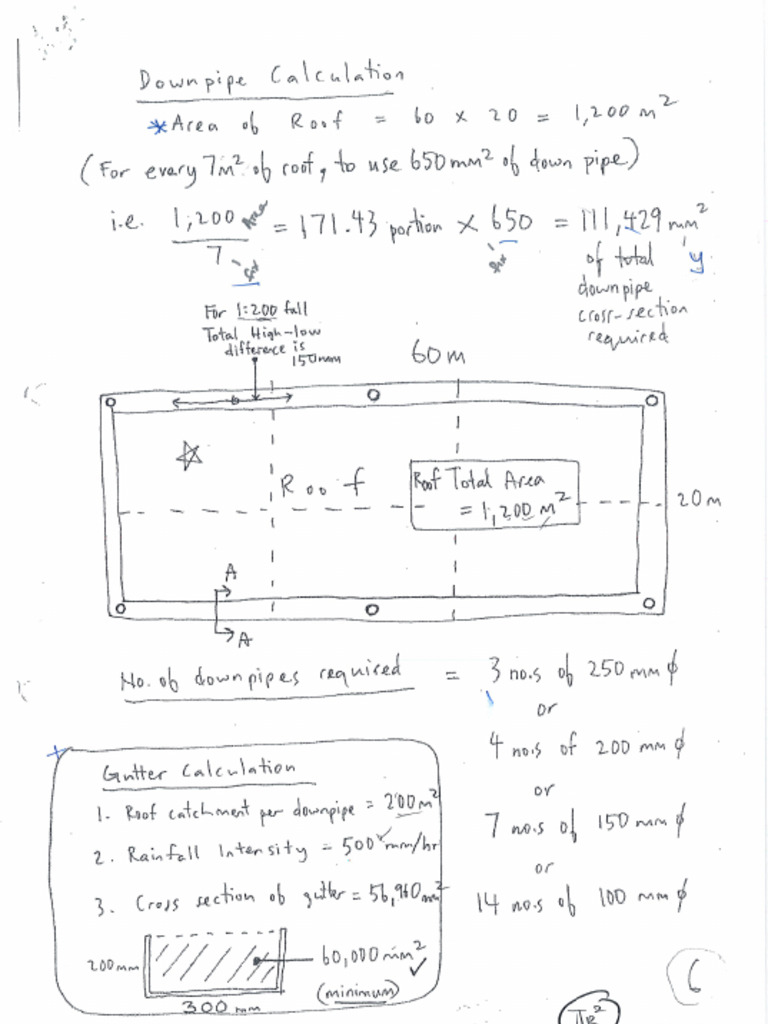 Downpipe Calculation
*Area of Roof = 60 x 20 = 1,200 m²
(For every 7m² of roof, to use 650mm² of down pipe)
i.e. 1,200 Area / 7 fix = 171.43 portion x 650 fix = 111,429 mm²
of total
downpipe
cross-section
required
y
For 1:200 fall
Total High-low
difference is
150mm
60 m
Roof
Roof Total Area
= 1,200 m²
20 m
A
A
No. of downpipes required = 3 no.s of 250 mm ϕ
or
4 no.s of 200 mm ϕ
or
7 no.s of 150 mm ϕ
or
14 no.s of 100 mm ϕ
Gutter Calculation
1. Roof catchment per downpipe = 200m²
2. Rainfall Intensity = 500 mm/hr
3. Cross section of gutter = 56,960 mm²
200mm
60,000 mm²
(minimum)
300 mm
6
πR²